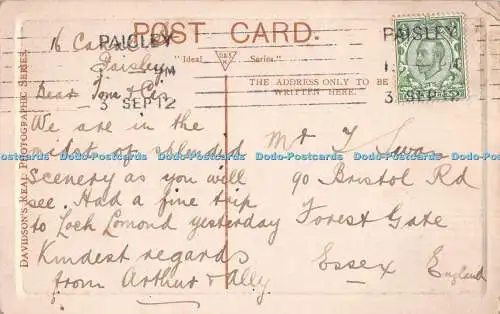 POST CARD.
"Ideal Series."
THE ADDRESS ONLY TO BE
WRITTEN HERE.
DAVIDSON'S REAL PHOTOGRAPHIC SERIES.
PAISLEY
PM
3 SEP 12
PAISLEY
3 SEP 12
16
Paisley
Dear Tom &
We are in the
midst of splendid
Scenery as you will
see. Had a fine trip
to Loch Lomond yesterday
Kindest regards
from Arthur & Ally
Mr T Swan
90 Bristol Rd
Forest Gate
Essex England
Dodo-Postcards Dodo-Postcards Dodo-Postcards Dodo-Postcards Dodo-Postcards Dodo-Postcards